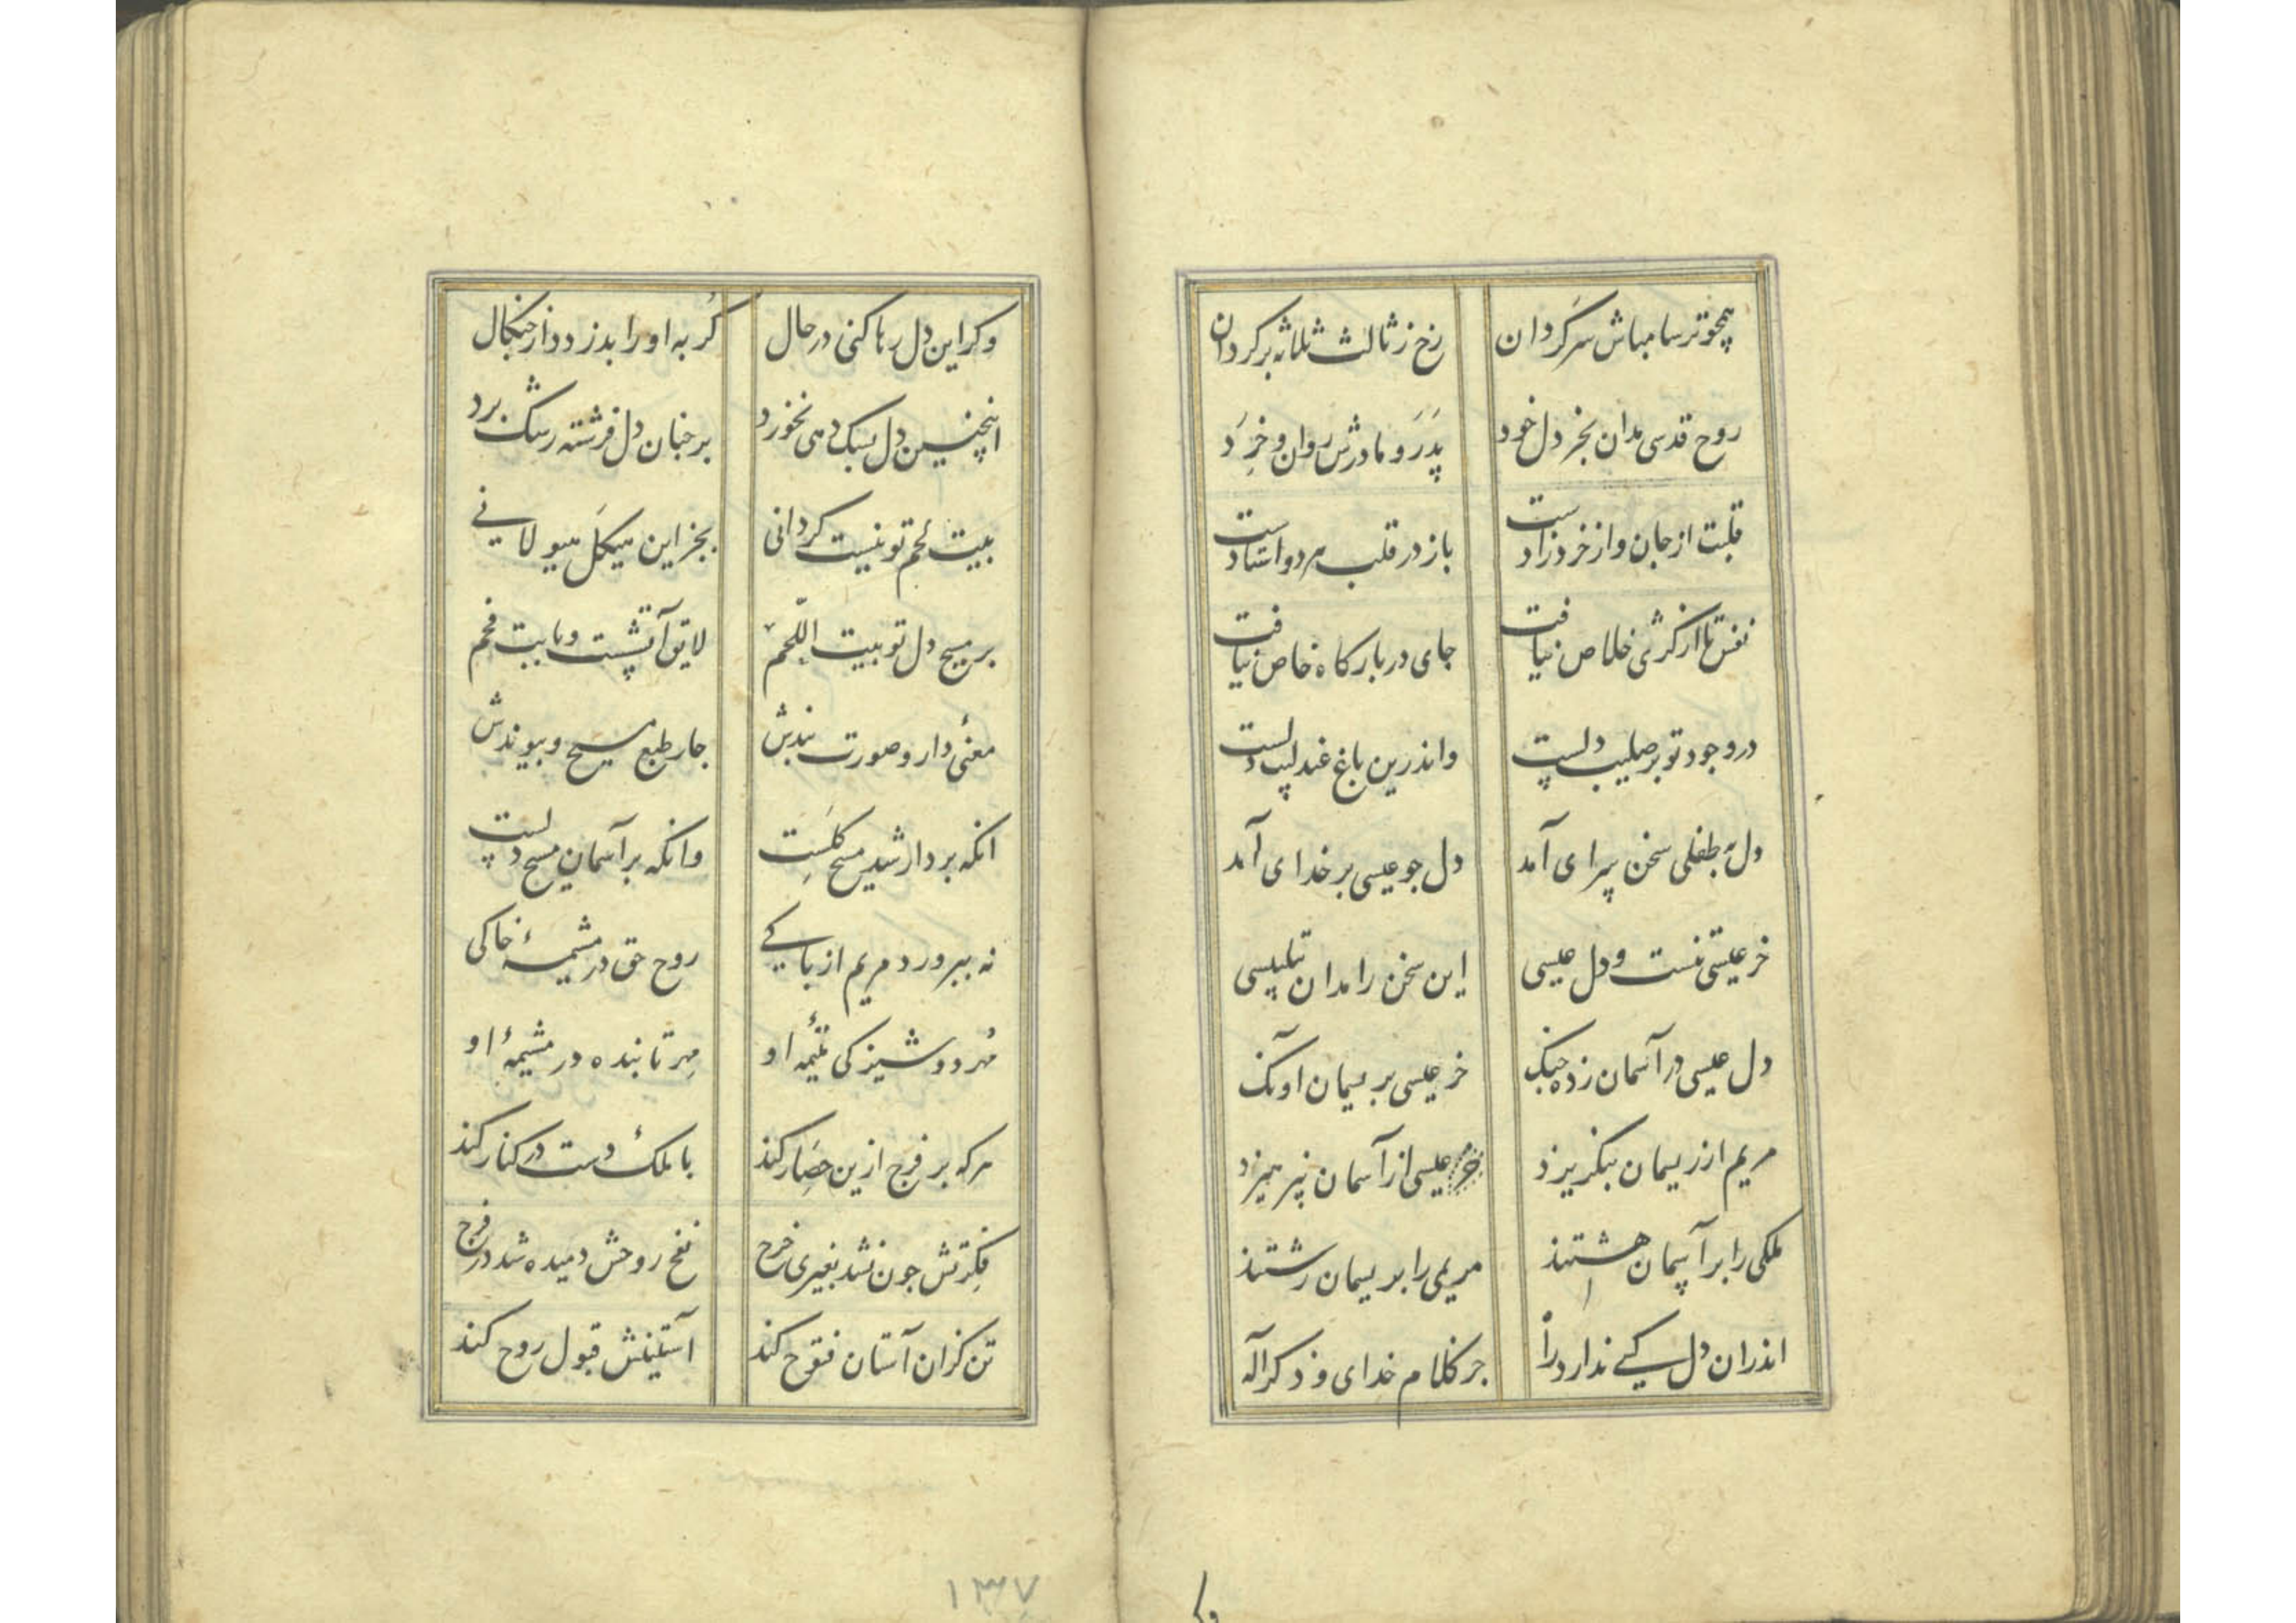 همچو ترسا مباش سرگردان رخ ز ثالث ثلاثه برگردان
روح قدسی مدان بجز دل خود پدر و مادرش روان و خرد
قلبت از جان و از خرد زادست باز در قلب هر دو استادست
نفس تا از کژی خلاص نیافت جای در بارگاه خاص نیافت
در وجود تو بر صلیب دلست واندرین باغ عندلیب دلست
دل به طفلی سخن سرای آمد دل جو عیسی بر خدای آمد
خر عیسی تنست و دل عیسی این سخن را مدان تلبیسی
دل عیسی در آسمان زده چنگ خر عیسی بریسمان آونگ
مریم از ریسمان بنگریزد خر عیسی از آسمان نپرهیزد
ملکی را بر آسمان هشتند مریمی را بریسمان رشتند
اندران دل کسی ندارد راه جز کلام خدای و ذکر آله
وکر
وکر این دل رها کنی در حال گربه او را بدزدد از چنکال
اینچنین دل سک دمی نخورد بر چنان دل فرشته رشک برد
بیت لحم تو نیست گردانی بجز این هیکل هیولانی
بر مسیح دل تو بیت اللحم لایق آتشست و بابیت فحم
معنی دار و صورت بندش جار طبع مسیح و پیوندش
انکه بر دار شد مسیح گلست وانکه بر آسمان مسیح دلست
نه بپرورد مریم از پاکی روح حق در مشیمهٔ خاکی
مهر دوشیزکی تتیمهٔ او مهر تابنده در مشیمهٔ او
هرکه بر فرج ازین حصار کند با ملک دست در کنار کند
فکرتش جون نشد بغیری خرج نفخ روحش دمیده شد در فرج
تن کزان آستان فتوح کند آستینش قبول روح کند
۱۳۷